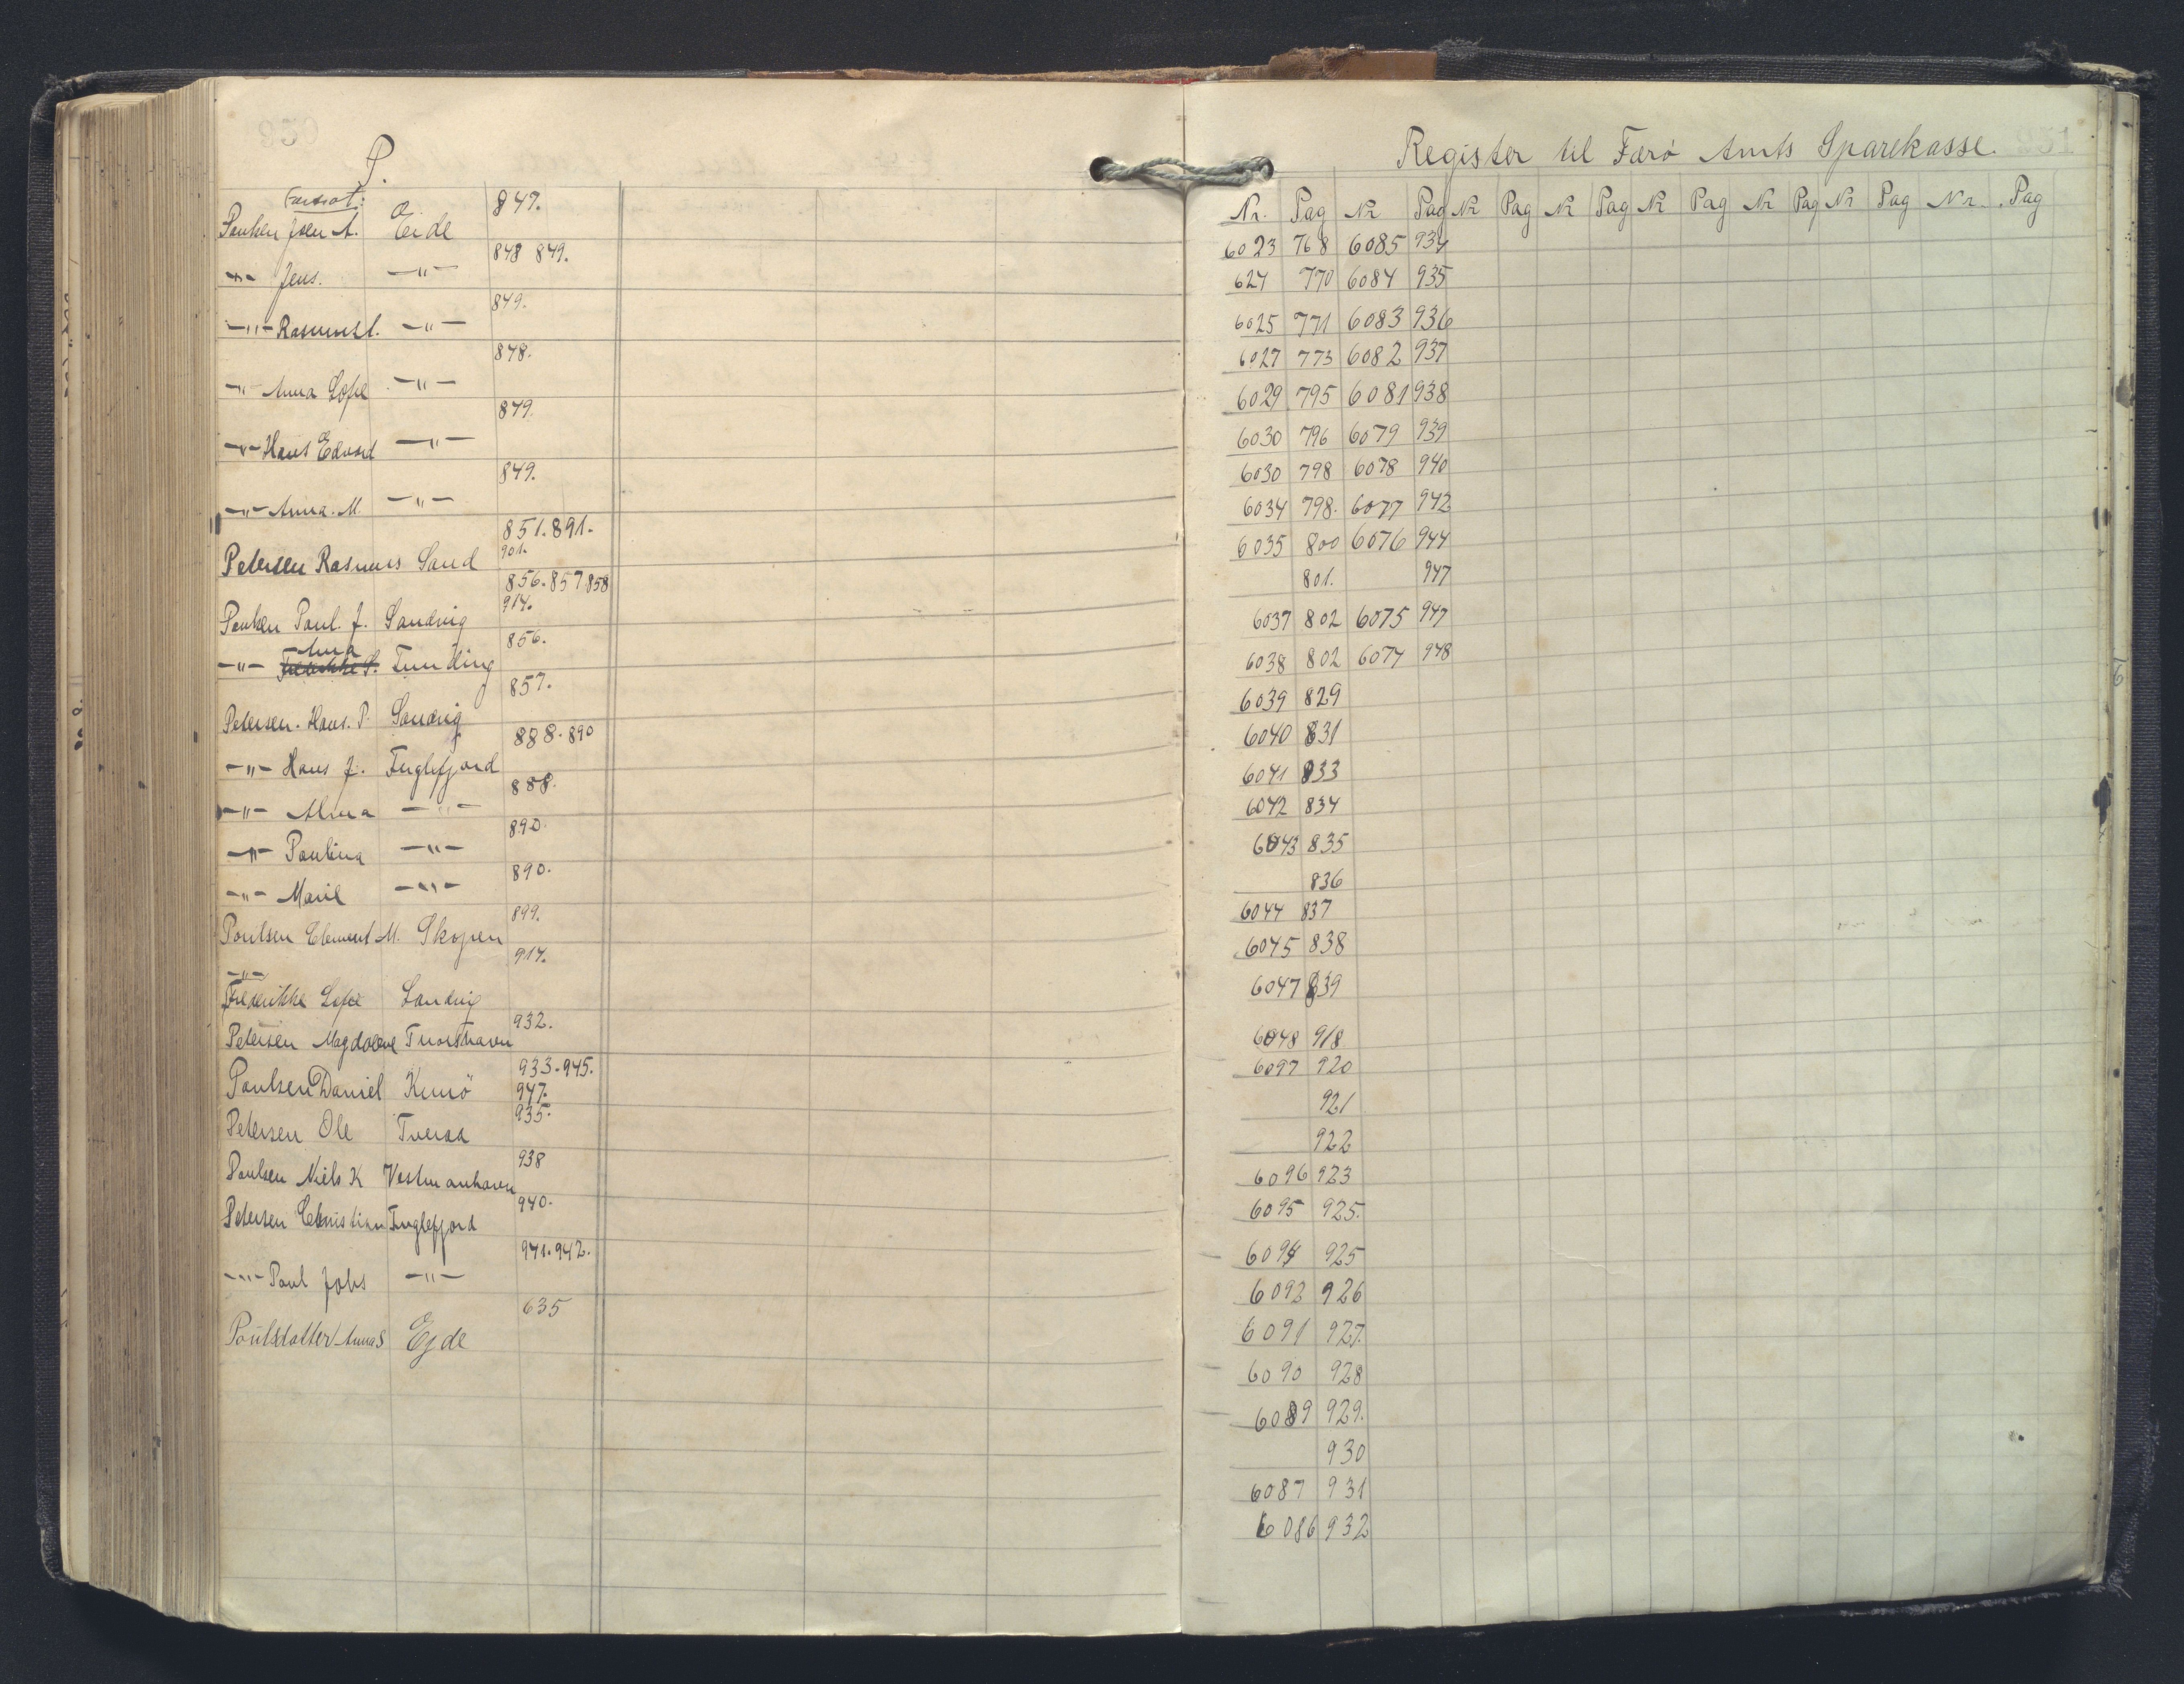 P.
Fortsat:
847.
Poulsen Jsen A. Eide
848 849.
-"- Jens. -"-
849.
-"- Rasmus L. -"-
848.
-"- Anna Sofie -"-
849.
-"- Hans Edvard -"-
849.
-"- Anna. M. -"-
851. 891.
901.
Petersen Rasmus Sand
856. 857 858
914.
Poulsen Poul. J. Sandvig
856.
Anna
-"- Frederikke S. Funding
857.
Petersen. Hans. P. Sandvig
888. 890
-"- Hans J. Fuglefjord
888.
-"- Alma -"-
890.
-"- Paulina -"-
890.
-"- Marie -"-
899.
Poulsen Clement M. Skopen
914.
-"-
Frederikke Sofie Sandvig
932.
Petersen Magdalene Thorshavn
933. 945.
947.
Poulsen Daniel Kunö
935.
Petersen Ole Tveraa
938
Poulsen Niels K Vestmanhavn
940.
Petersen Christian Fuglefjord
941. 942.
-"- Poul Johs -"-
635
Poulsdatter Anna S Ejde
Register til Færö Amts Sparekasse.
Nr. Pag Nr Pag Nr Pag Nr Pag Nr Pag Nr Pag Nr Pag Nr. Pag
6023 768 6085 934
624 770 6084 935
6025 771 6083 936
6027 773 6082 937
6029 795 6081 938
6030 796 6079 939
6030 798 6078 940
6034 798. 6077 942
6035 800 6076 944
801. 947
6037 802 6075 947
6038 802 6074 948
6039 829
6040 831
6041 833
6042 834
6043 835
836
6044 837
6045 838
6047 839
6048 918
6097 920
921
922
6096 923
6095 925.
6094 925
6092 926
6091 927.
6090 928
6089 929.
930
6087 931
6086 932